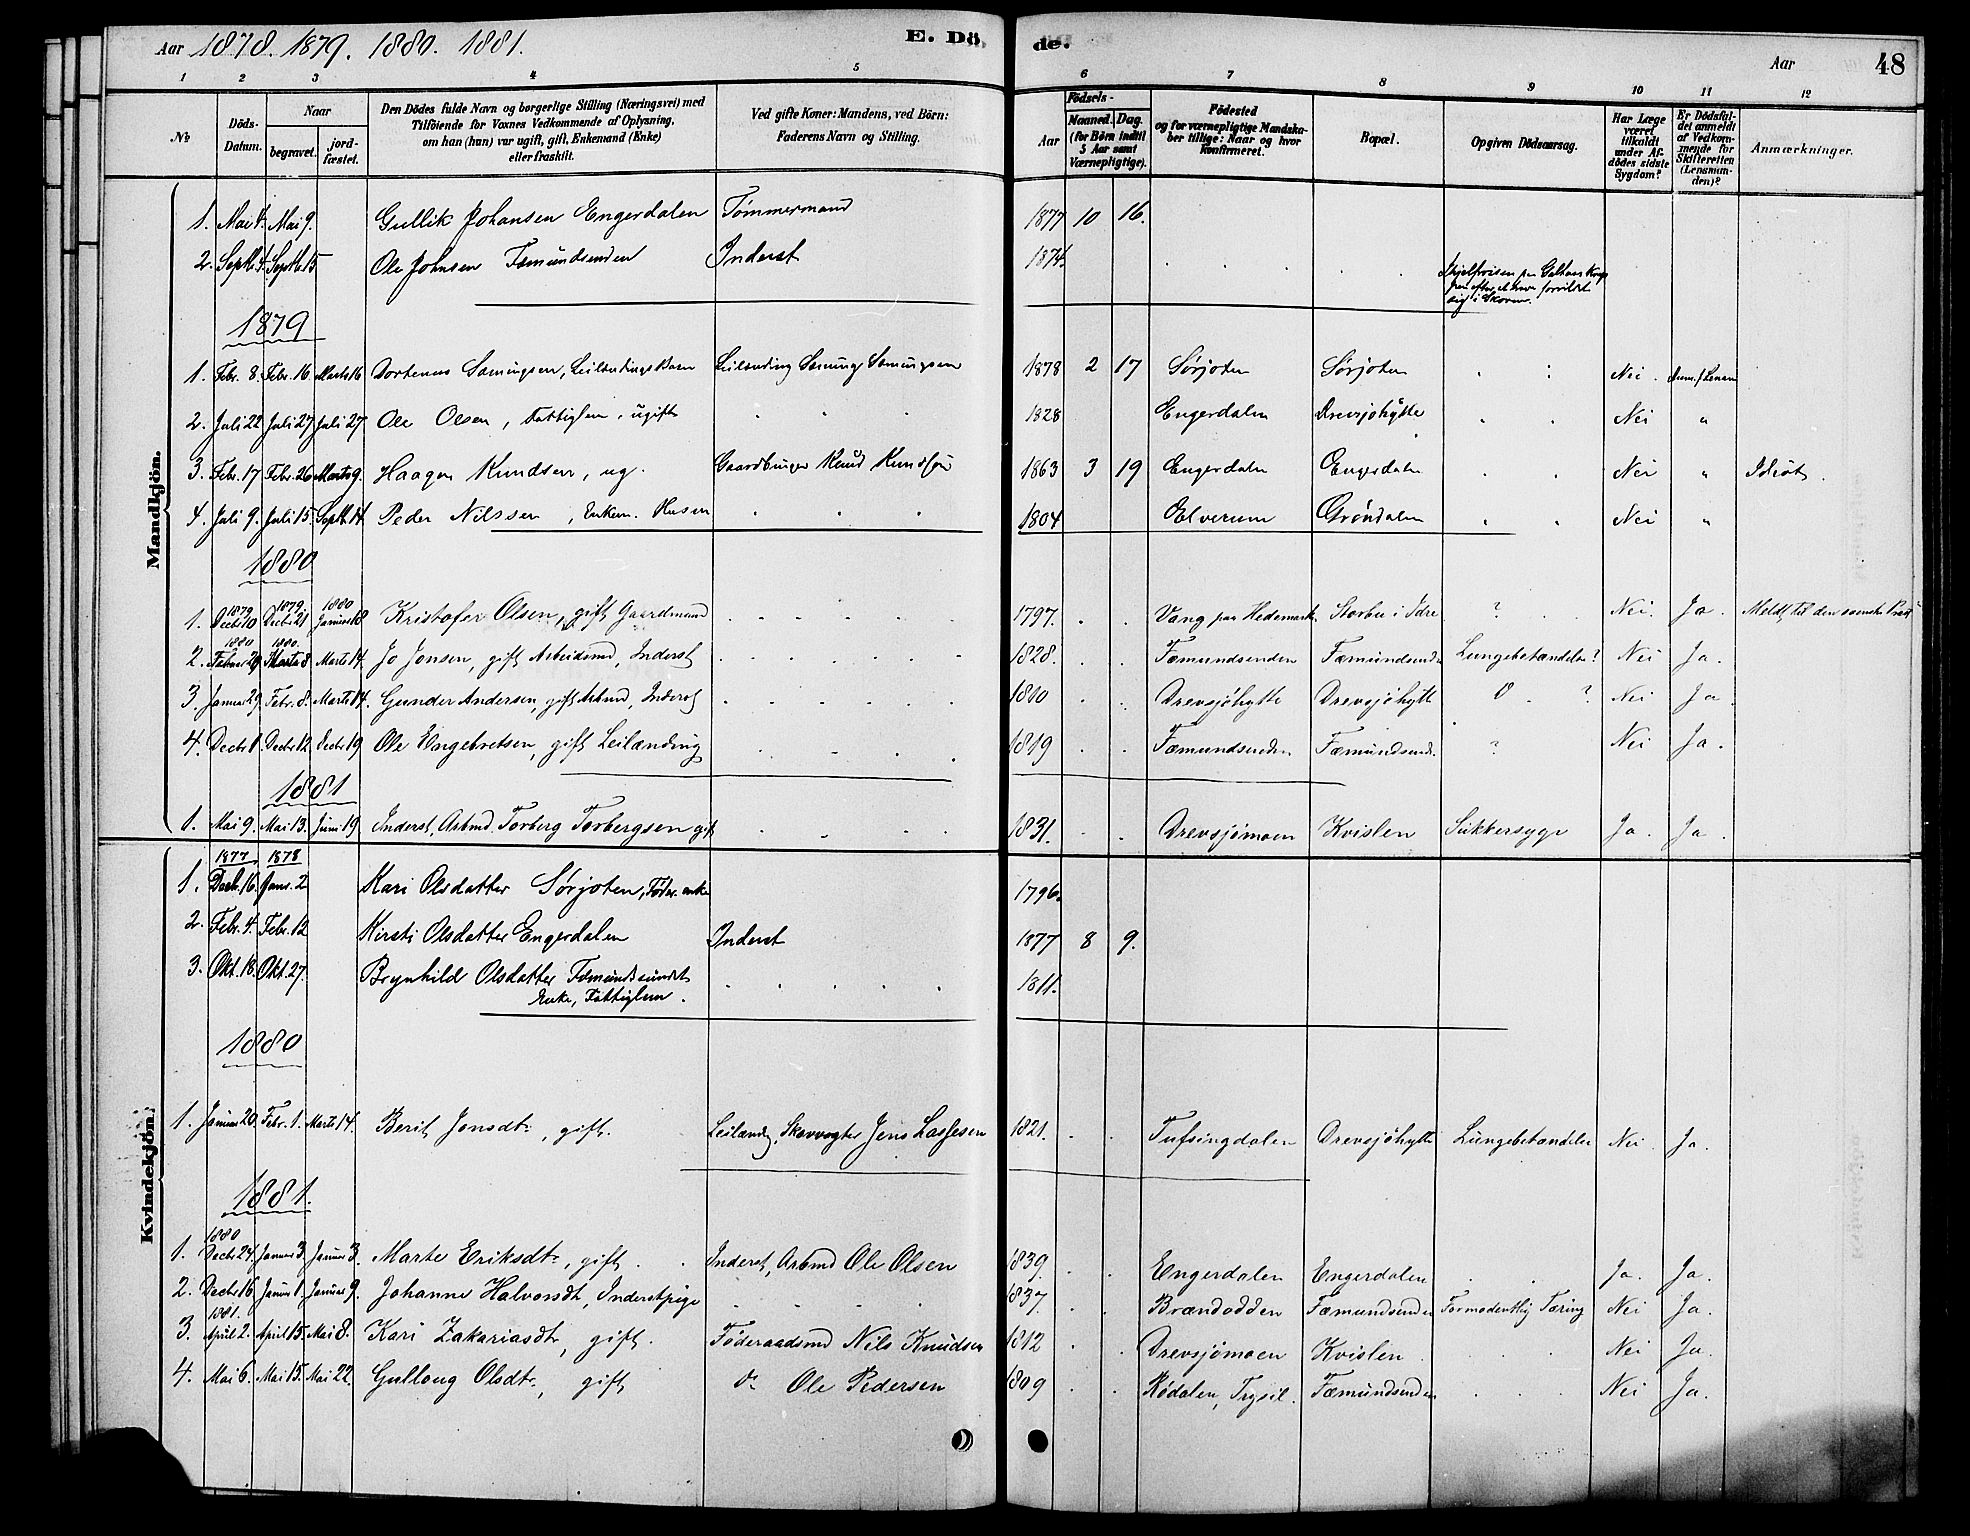 Aar 1878. 1879. 1880. 1881.
E. Dö, de.
Aar 48
1 2 3 4 5 6 7 8 9 10 11 12
№
Döds-Datum.
Naar
begravet.
jord-fæstet.
Den Dödes fulde Navn og borgerlige Stilling (Næringsvei) med
Tilföiende for Voxnes Vedkommende af Oplysning,
om han (hun) var ugift, gift, Enkemand (Enke)
eller fraskilt.
Ved gifte Koner: Mandens, ved Börn:
Faderens Navn og Stilling.
Födsels-
Aar
Maaned. Dag.
(for Börn indtil
5 Aar samt
Værnepligtige).
Födested
og for værnepligtige Mandska-
ber tillige: Naar og hvor
konfirmeret.
Bopæl.
Opgiven Dödsaarsag.
Har Læge
været
tilkaldt
under Af-
dödes sidste
Sygdom?
Er Dödsfal-
det anmeldt
af Vedkom-
mende for
Skifteretten
(Lensman-
den)?
Anmærkninger.
Mandkjön.
1. Mai 4. Mai 9. Gullik Johansen Engerdalen Tømmermand 1877 10 16.
2. Septb. 4. Septb. 15 Ole Johnsen Fæmundsenden Inderst 1874.
efter at have forvildet
sig i Skoven.
1879
1. Febr. 8. Febr. 16 Marts 16 Dortenus Sæmingsen, Leilændings Barn Leilænding Sæming Sæmingsen 1878 2 17 Sørjoten Sørjoten Nei. Anm. f. Lensm
2. Juli 22 Juli 27 Juli 27 Ole Olsen, Fattiglem, ugift 1828 Engerdalen Drevsjøhytte Nei "
3. Febr. 17 Febr. 26 Marts 9. Haagen Knudsen, ug. Gaardbruger Knud Knudsen 1863 3 19 Engerdalen Engerdalen Nei " Idiot.
4. Juli 9. Juli 15. Septb. 14 Peder Nilssen, Enkem. Husm 1804 Elverum Grøndalen Nei "
1880
1879 1879 1880
1. Decbr 10 Decbr 21 Januar 18 Kristofer Olsen, gift Gaardmand 1797. Vang paa Hedemark. Storbu i Idre ? Nei. Ja. Meldt til den svenske Præst
1880 1880
2. Febr 29 Marts 8. Marts 14. Jo Jonsen, gift Arbeidsmd, Inderst 1828. Fæmundsenden Fæmundsende Lungebetændelse? Nei Ja.
3. Januar 29. Febr. 8. Marts 14. Gunder Andersen, gift Arbmd, Inderst 1810 Drevsjøhytte Drevsjøhytt ? Nei Ja.
4. Decbr 1. Decbr 12 Decbr 19 Ole Engebretsen, gift Leilænding 1819 Fæmundsenden Fæmundsend. ? Nei Ja.
1881
1. Mai 9. Mai 13. Juni 19 Inderst, Arbmd. Torberg Torbergsen gift 1831. Drevsjømoen Kvislen Sukkersyge Ja. Ja.
Kvindekjön.
1877 1878
1. Decb. 16. Janr. 2 Kari Olsdatter Sørjoten, Føder. enke 1796.
2. Febr. 4. Febr. 12 Kirsti Olsdatter Engerdalen Inderst 1877 8 9.
3. Okt. 18. Okt. 27. Brynhild Olsdatter Fæmundsundet 1811.
Enke, Fattiglem.
1880
1. Januar 20. Febr. 1. Marts 14. Berit Jonsdtr, gift. Leilændg, Skovvogter Jens Lassesen 1821. Tufsingdalen Drevsjøhytte Lungebetændelse Nei Ja.
1881.
1880
1. Decbr 24. Januar 3. Januar 3. Marte Eriksdtr, gift. Inderst, Arbmd Ole Olsen 1839. Engerdalen Engerdalen Ja. Ja.
2. Decbr 16. Januar 1. Januar 9. Johanne Halvorsdtr, Inderstpige 1837. Brændodden Fæmundsenden Formodentlig Tæring Nei Ja.
1881.
3. April 2. April 15. Mai 8. Kari Zakariasdtr, gift. Føderaadsmd Nils Knudsen 1812 Drevsjømoen Kvislen. Nei Ja.
4. Mai 6. Mai 15. Mai 22. Gullaug Olsdtr, gift do Ole Pedersen 1809 Rødalen, Trysil. Fæmundsenden Nei Ja.